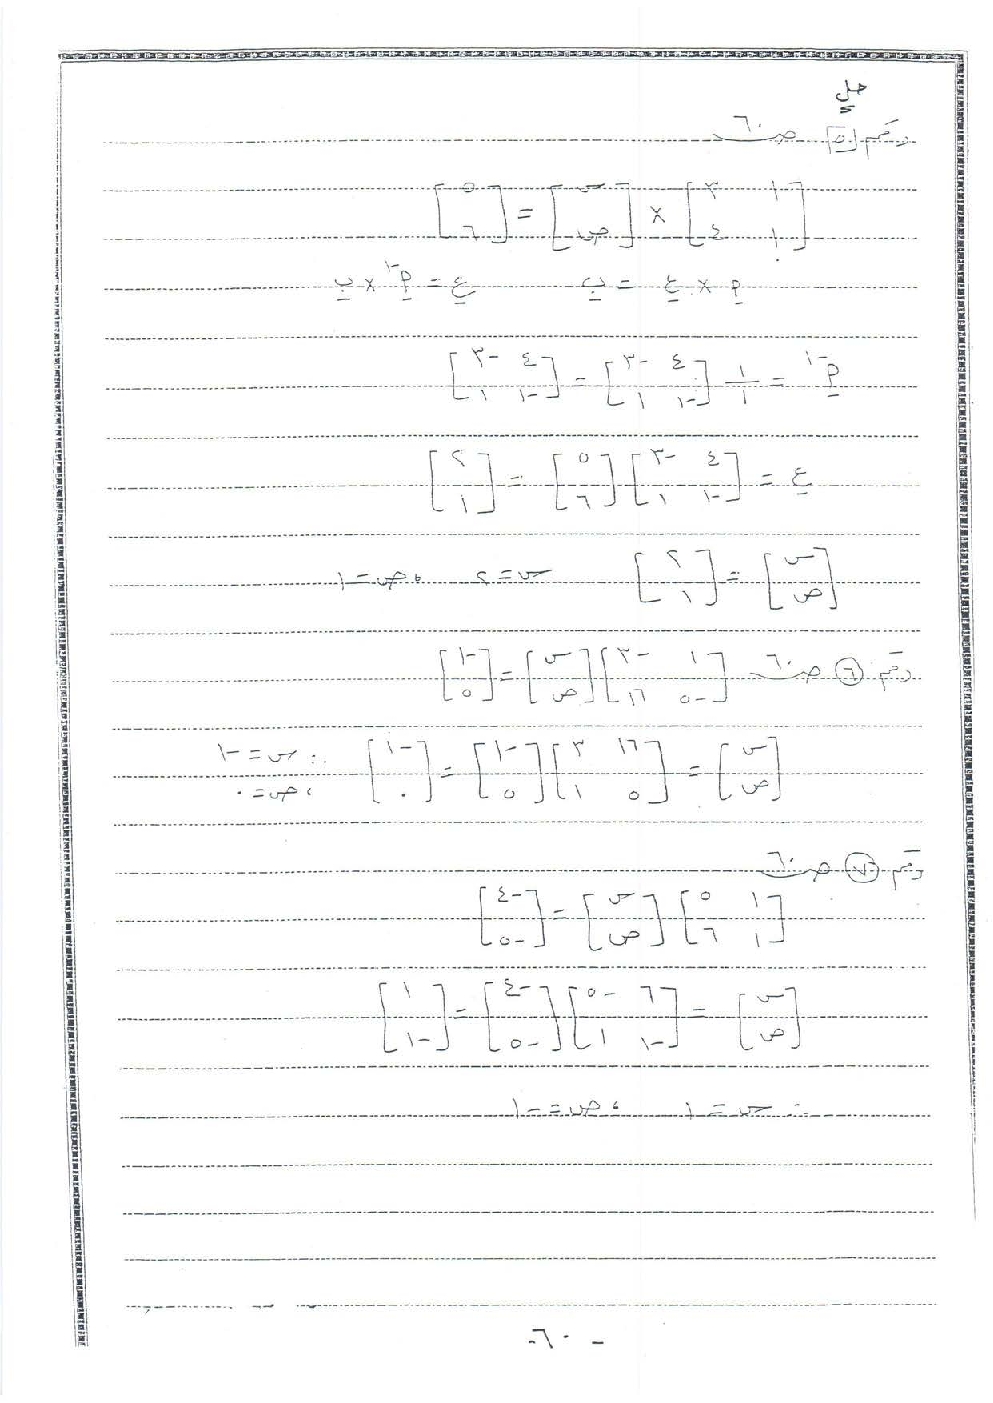 حل
رقم ٥ ص ٦٠
[١ ٣ / ١ ٤] × [س / ص] = [٥ / ٦]
أ × ع = ب   ع = أ⁻¹ × ب
أ⁻¹ = ١/١ [٤ -٣ / -١ ١] = [٤ -٣ / -١ ١]
ع = [٤ -٣ / -١ ١] [٥ / ٦] = [٢ / ١]
[س / ص] = [٢ / ١]   س = ٢ ، ص = ١
رقم ٦ ص ٦٠ [١ -٣ / -٥ ١٦] [س / ص] = [-١ / ٥]
[س / ص] = [١٦ ٣ / ٥ ١] [-١ / ٥] = [-١ / ٠] ∴ س = -١
، ص = ٠
رقم ٧ ص ٦٠
[١ ٥ / ١ ٦] [س / ص] = [-٤ / -٥]
[س / ص] = [٦ -٥ / -١ ١] [-٤ / -٥] = [١ / -١]
∴ س = ١ ، ص = -١
- ٦٠ -